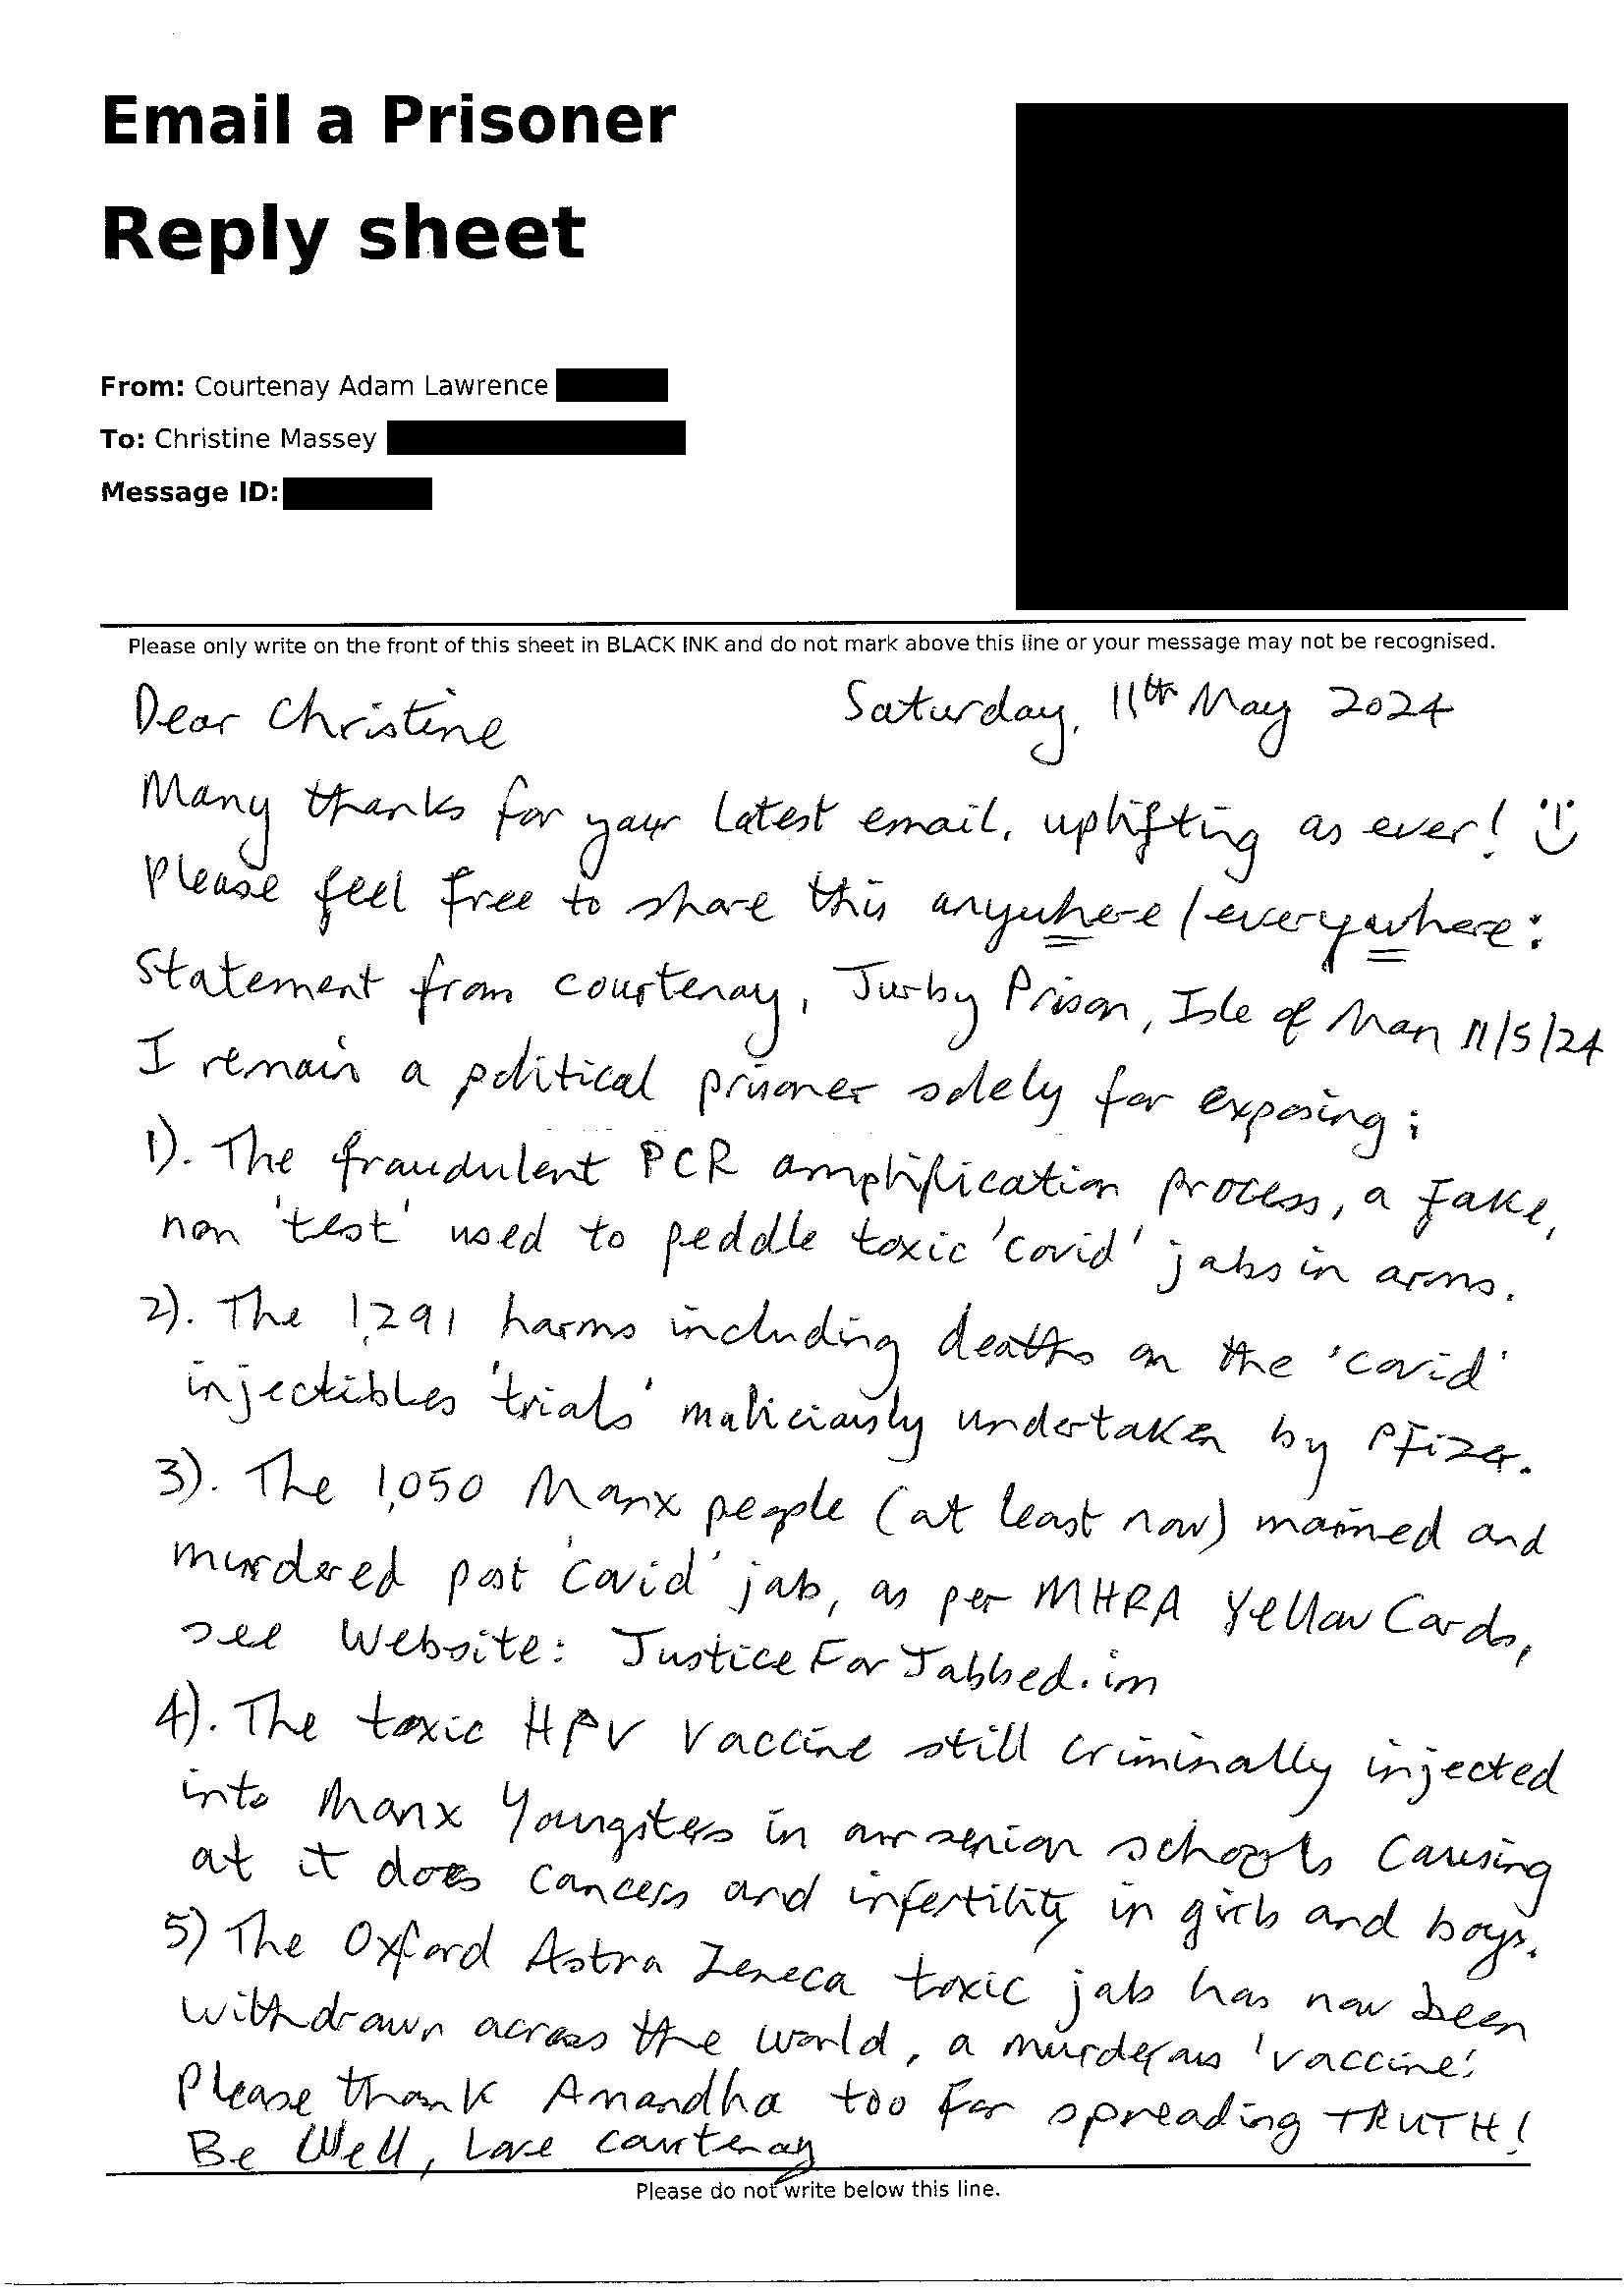 Email a Prisoner
Reply sheet
From: Courtenay Adam Lawrence
To: Christine Massey
Message ID:
Please only write on the front of this sheet in BLACK INK and do not mark above this line or your message may not be recognised.
Dear Christine Saturday, 11th May 2024
Many thanks for your latest email, uplifting as ever!
Please feel free to share this anywhere/everywhere:
Statement from Courtenay, Jurby Prison, Isle of Man 11/5/24
I remain a political prisoner solely for exposing;
1). The fraudulent PCR amplification process, a fake,
non 'test' used to peddle toxic 'covid' jabs in arms.
2). The 1,291 harms including deaths on the 'covid'
injectibles 'trials' maliciously undertaken by Pfizer.
3). The 1,050 Manx people (at least now) maimed and
murdered post 'covid' jab, as per MHRA Yellow Cards,
see Website: JusticeForJabbed.im
4). The toxic HPV Vaccine still criminally injected
into Manx Youngsters in our senior schools causing
at it does cancers and infertility in girls and boys.
5) The Oxford Astra Zeneca toxic jab has now been
withdrawn across the world, a murderous 'vaccine'.
Please thank Amandha too for spreading TRUTH!
Be Well, Love Courtenay
Please do not write below this line.